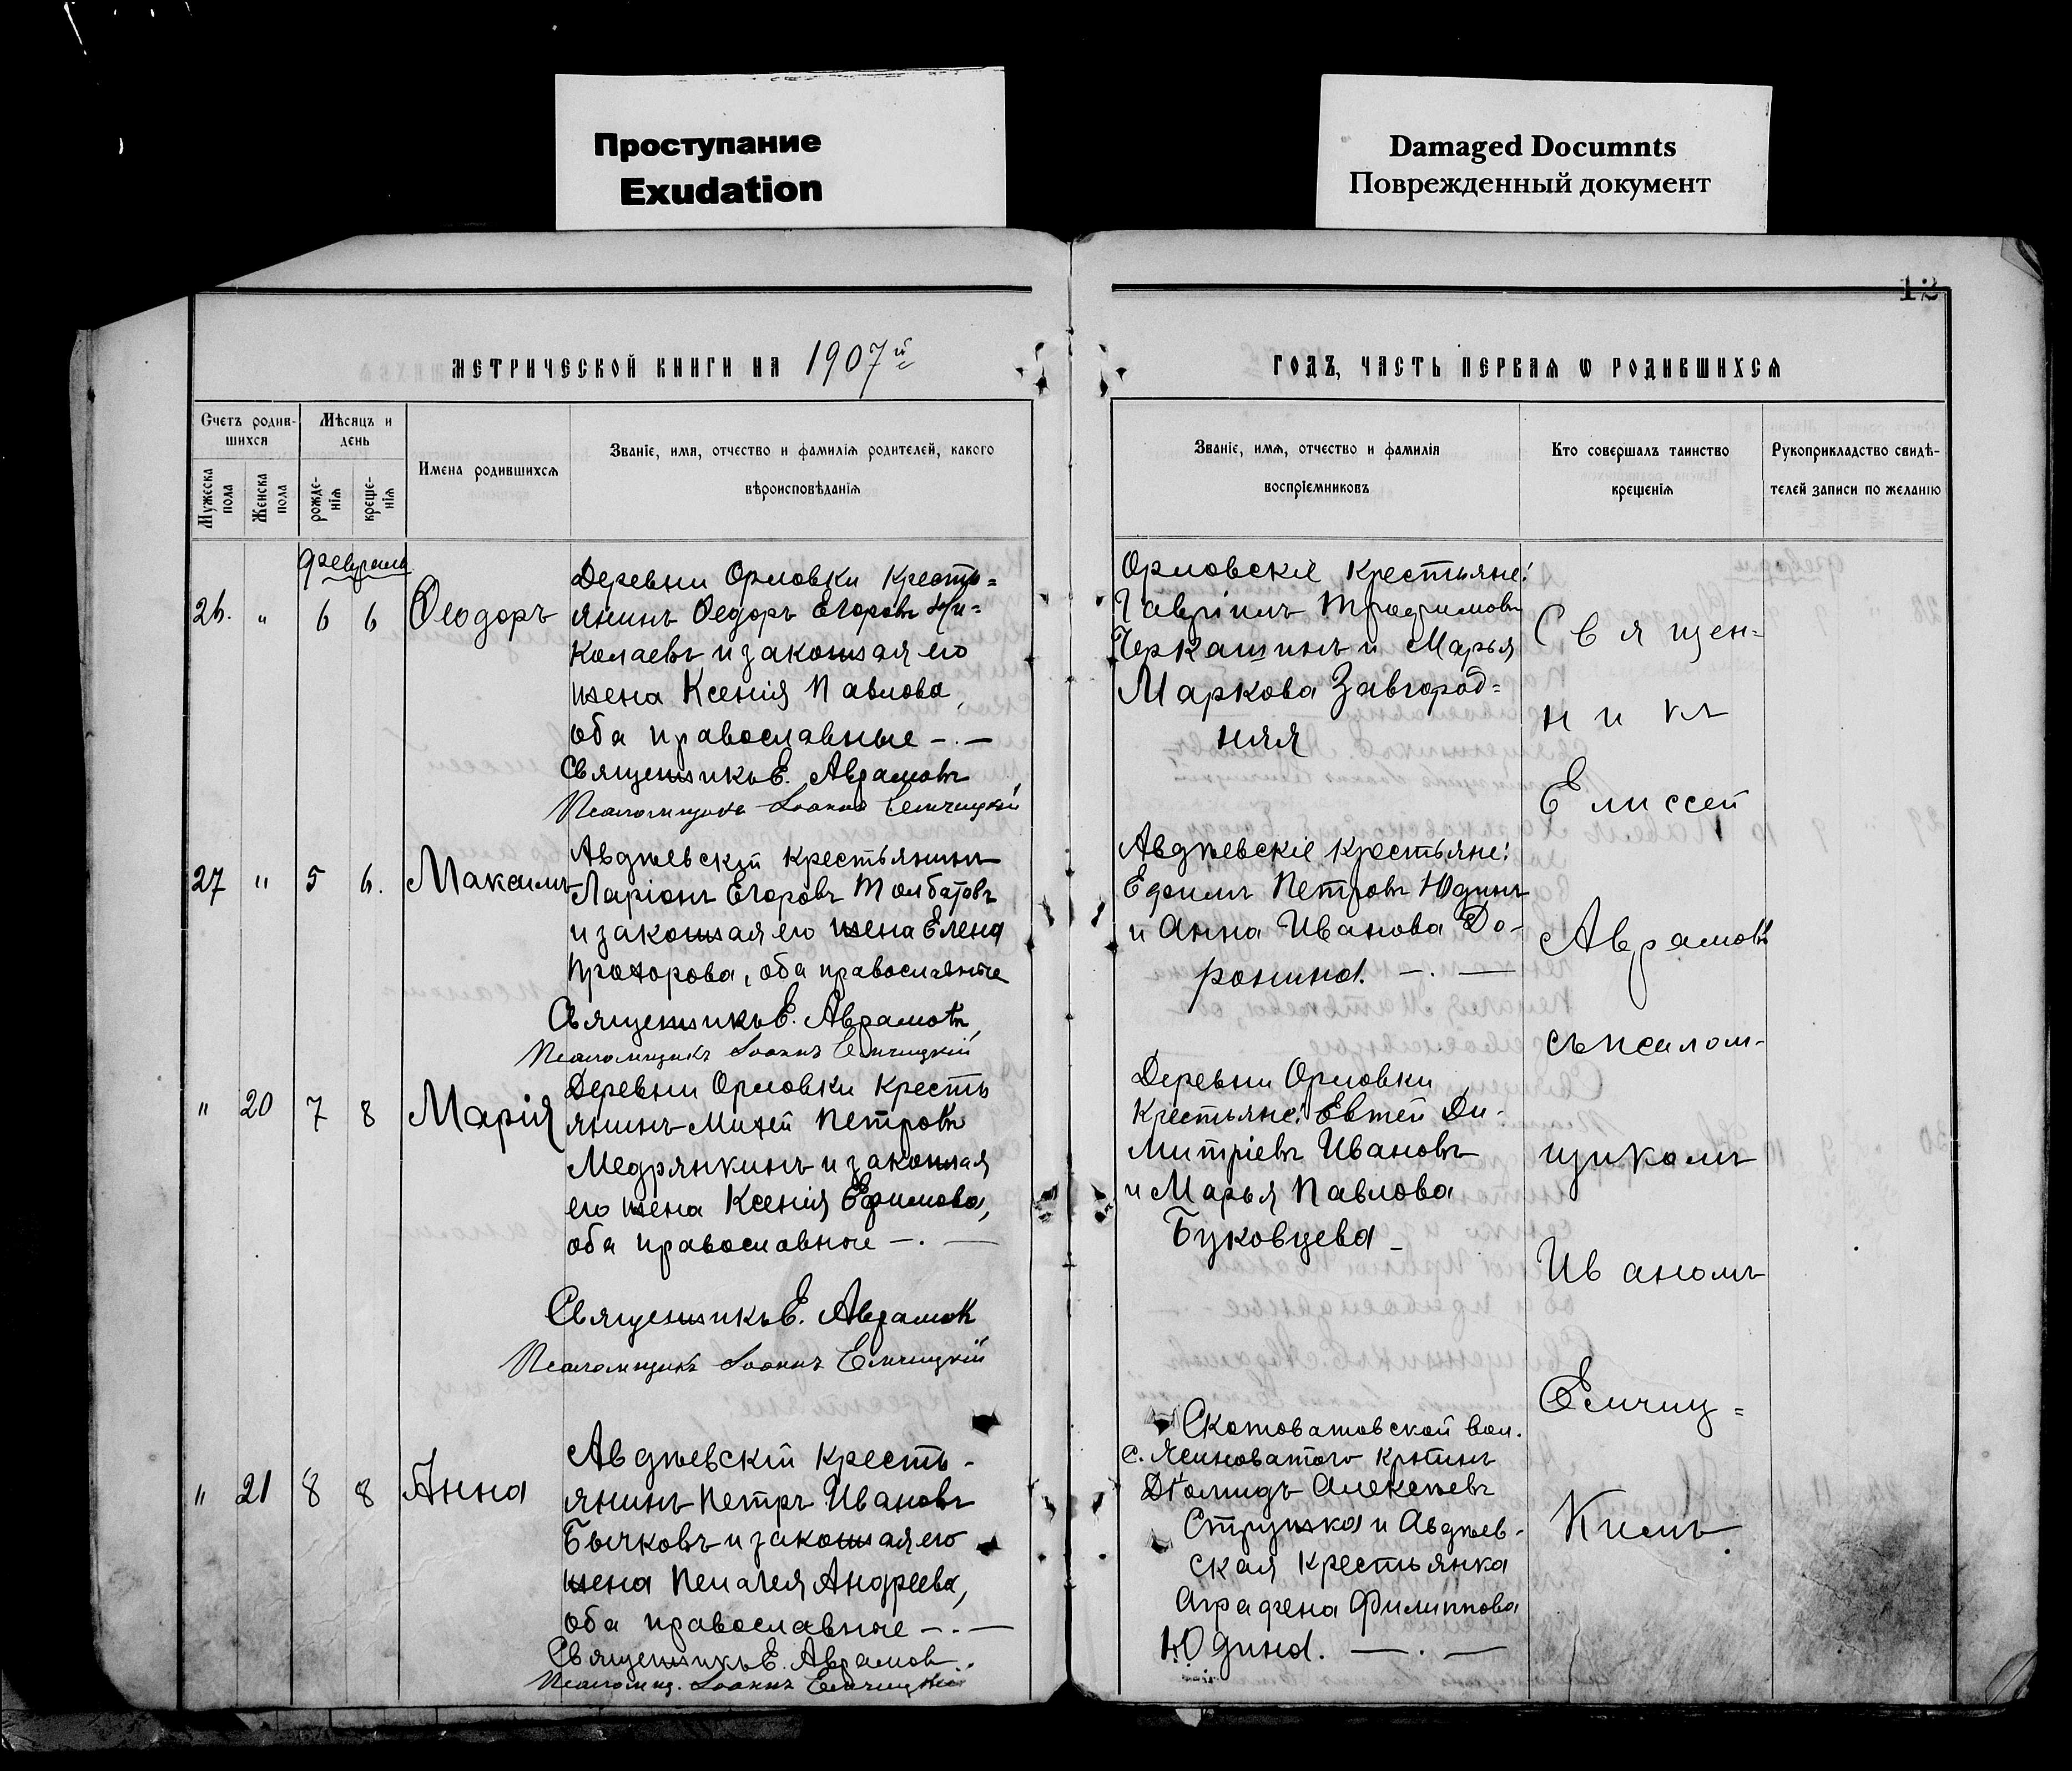 Проступание
Exudation
Damaged Documnts
Поврежденный документ
12
МЕТРИЧЕСКОЙ КНИГИ НА 1907й
ГОДЪ, ЧАСТЬ ПЕРВАЯ Ѡ РОДИВШИХСЯ
Счетъ родив-
шихся
Мѣсяцъ и
день
Мужеска
пола
Женска
пола
рожде-
нія
креще-
нія
Имена родившихся
Званіе, имя, отчество и фамилія родителей, какого
вѣроисповѣданія
Званіе, имя, отчество и фамилія
воспріемниковъ
Кто совершалъ таинство
крещенія
Рукоприкладство свидѣ-
телей записи по желанію
Февраль
26. " 6 6 Ѳеодоръ
Деревни Орловки Кресть=
янинъ Ѳедоръ Егоровъ Ни=
колаевъ и законная его
жена Ксенія Павлова,
оба православные -.-
Священникъ Е. Аврамовъ
Псаломщикъ Іоаннъ Елчицкій
Орловскіе крестьяне:
Гавріилъ Трофимовъ
Черкашинъ и Марья
Маркова Завгород=
няя
27 " 5 6. Максимъ
Авдѣевскій крестьянинъ
Ларіонъ Егоровъ Толбатовъ
и законная его жена Елена
Прохорова, оба православные
Священникъ Е. Аврамовъ,
Псаломщикъ Іоаннъ Елчицкій
Авдѣевскіе крестьяне:
Ефимъ Петровъ Юдинъ
и Анна Иванова До-
ронина. -.-
" 20 7 8 Марія
Деревни Орловки Кресть
янинъ Михей Петровъ
Медрянкинъ и законная
его жена Ксенія Ефимова,
оба православные -.-
Священникъ Е. Аврамовъ
Псаломщикъ Іоаннъ Елчицкій
Деревни Орловки
Крестьяне: Евтей Ди-
митріевъ Ивановъ
и Марья Павлова
Буковцева -
" 21 8 8 Анна
Авдѣевскій кресть-
янинъ Петръ Ивановъ
Бычковъ и законная его
жена Пелагея Андреева,
оба православные -.-
Священникъ Е. Аврамовъ.
Псаломщ. Іоаннъ Елчицкій
Скотоватовской вол.
с. Ясиноватого кр-тинъ
Діомидъ Алексѣевъ
Стружка и Авдѣев-
ская крестьянка
Аграфена Филиппова
Юдина. -.-
Священ=
никъ
Елиссей
Аврамовъ
съ псалом-
щикомъ
Иваномъ
Елчиц=
кимъ.